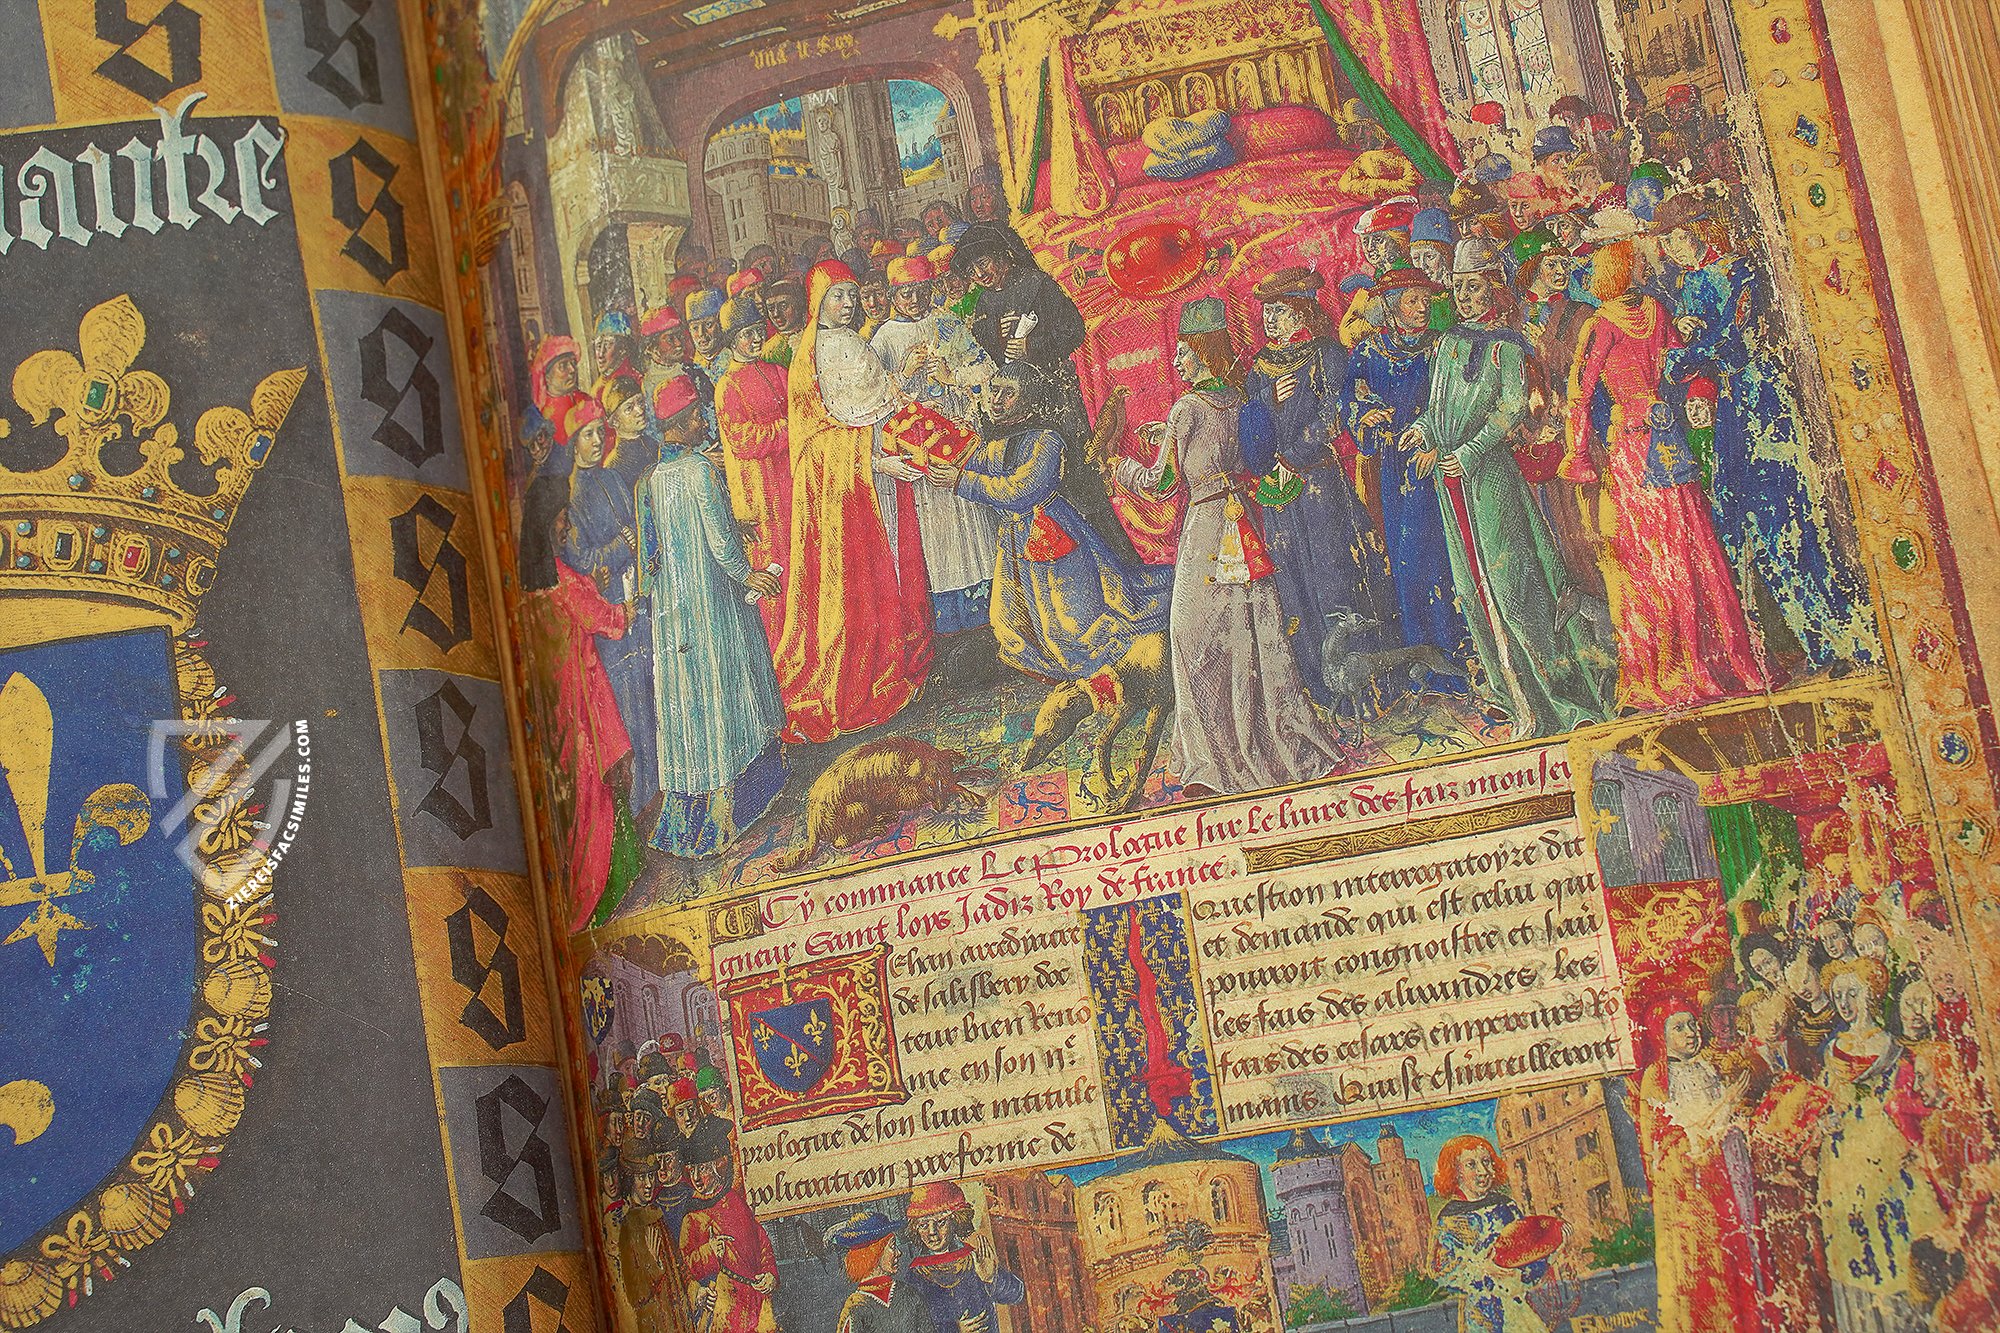 autre
S
S
S
S
S
S
S
S
S
ZIEREISFACSIMILES.COM
Cy commance Le Prologue sur Le livre des faiz monsei
gneur Saint loys Jadiz Roy de france.
Jehan
de salisbery doc
teur bien Renō
me en son
prologue de son livre intitule
policraticon par forme de
Question interrogatoyre dit
et demande qui est celui qui
pouvroit congnoistre et sau
les fais des alixandres. Les
fais des cesars empereurs Ro
mains. Qui se esmueilleroit